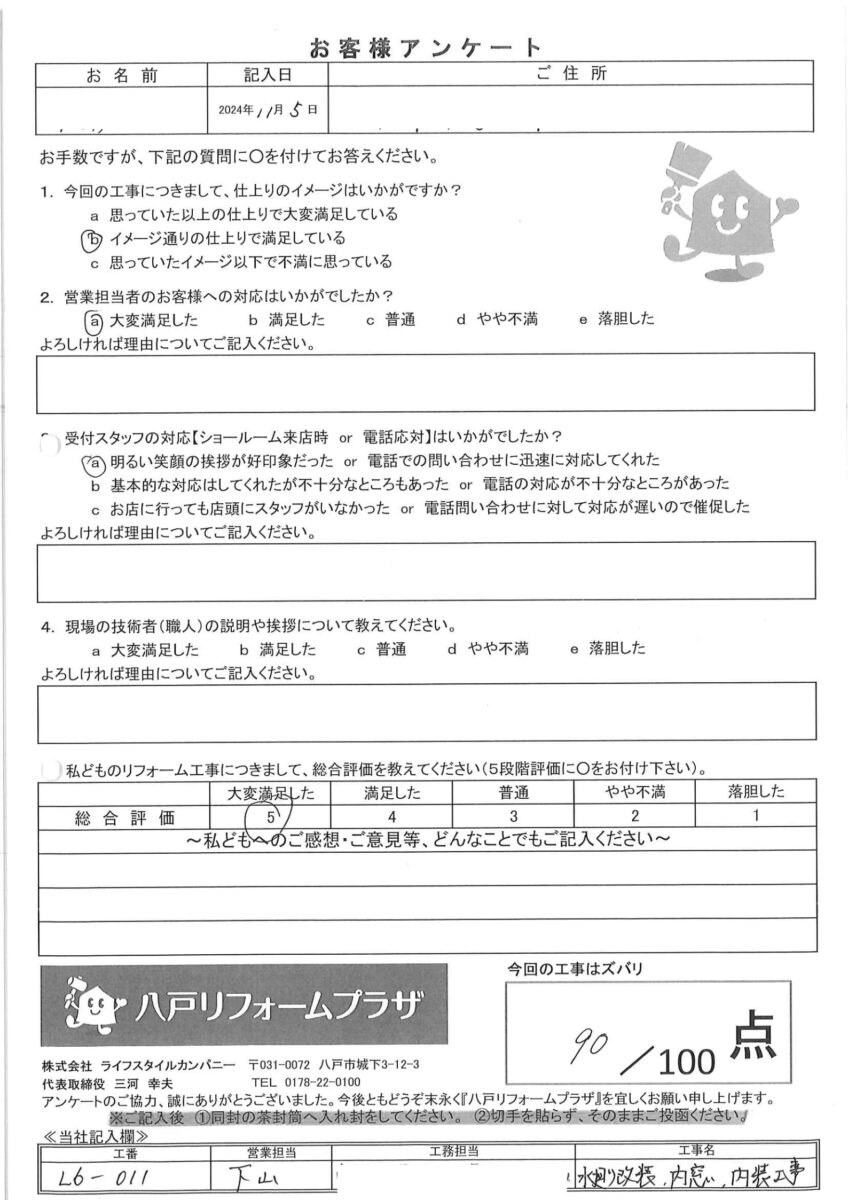 お客様アンケート
お名前 記入日 ご住所
2024年11月5日
お手数ですが、下記の質問に〇を付けてお答えください。
1. 今回の工事につきまして、仕上りのイメージはいかがですか?
a 思っていた以上の仕上りで大変満足している
b イメージ通りの仕上りで満足している
c 思っていたイメージ以下で不満に思っている
2. 営業担当者のお客様への対応はいかがでしたか?
a 大変満足した b 満足した c 普通 d やや不満 e 落胆した
よろしければ理由についてご記入ください。
受付スタッフの対応【ショールーム来店時 or 電話応対】はいかがでしたか?
a 明るい笑顔の挨拶が好印象だった or 電話での問い合わせに迅速に対応してくれた
b 基本的な対応はしてくれたが不十分なところもあった or 電話の対応が不十分なところがあった
c お店に行っても店頭にスタッフがいなかった or 電話問い合わせに対して対応が遅いので催促した
よろしければ理由についてご記入ください。
4. 現場の技術者(職人)の説明や挨拶について教えてください。
a 大変満足した b 満足した c 普通 d やや不満 e 落胆した
よろしければ理由についてご記入ください。
私どものリフォーム工事につきまして、総合評価を教えてください(5段階評価に〇をお付け下さい)。
大変満足した 満足した 普通 やや不満 落胆した
総合評価 5 4 3 2 1
~私どもへのご感想・ご意見等、どんなことでもご記入ください~
八戸リフォームプラザ
今回の工事はズバリ
90/100点
株式会社 ライフスタイルカンパニー 〒031-0072 八戸市城下3-12-3
代表取締役 三河 幸夫 TEL 0178-22-0100
アンケートのご協力、誠にありがとうございました。今後ともどうぞ末永く『八戸リフォームプラザ』を宜しくお願い申し上げます。
※ご記入後 ①同封の茶封筒へ入れ封をしてください。 ②切手を貼らず、そのままご投函ください。
≪当社記入欄≫
工番 営業担当 工務担当 工事名
L6-011 下山 水廻り改装、内窓、内装工事